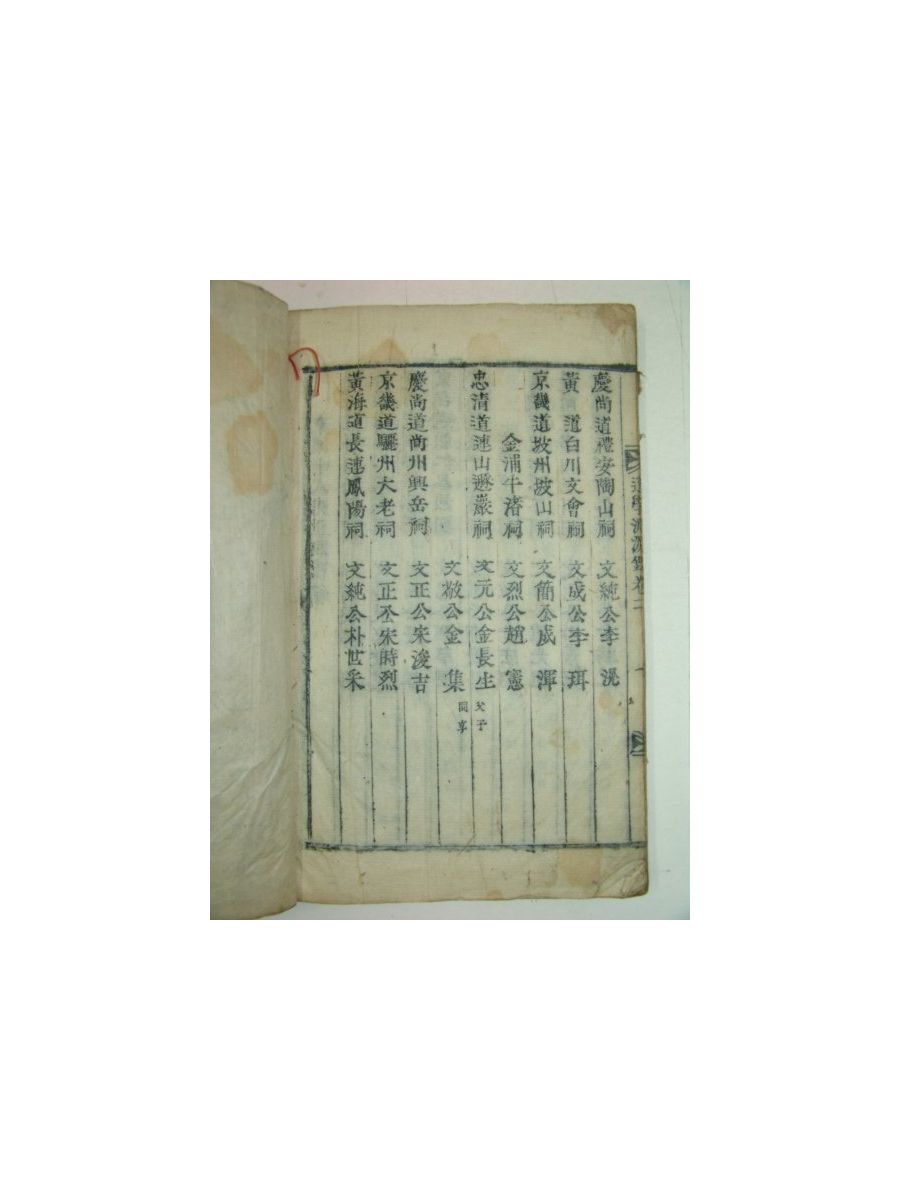 慶尚道禮安陶山祠 文純公李 滉
黃 道白川文會祠 文成公李 珥
京畿道坡州坡山祠 文簡公成 渾
金浦牛渚祠 文烈公趙 憲
忠清道連山遯巖祠 文元公金長生 父子
文敬公金 集 同享
慶尚道尚州興岳祠 文正公宋浚吉
京畿道驪州大老祠 文正公宋時烈
黃海道長連鳳陽祠 文純公朴世采
道學淵源錄卷二